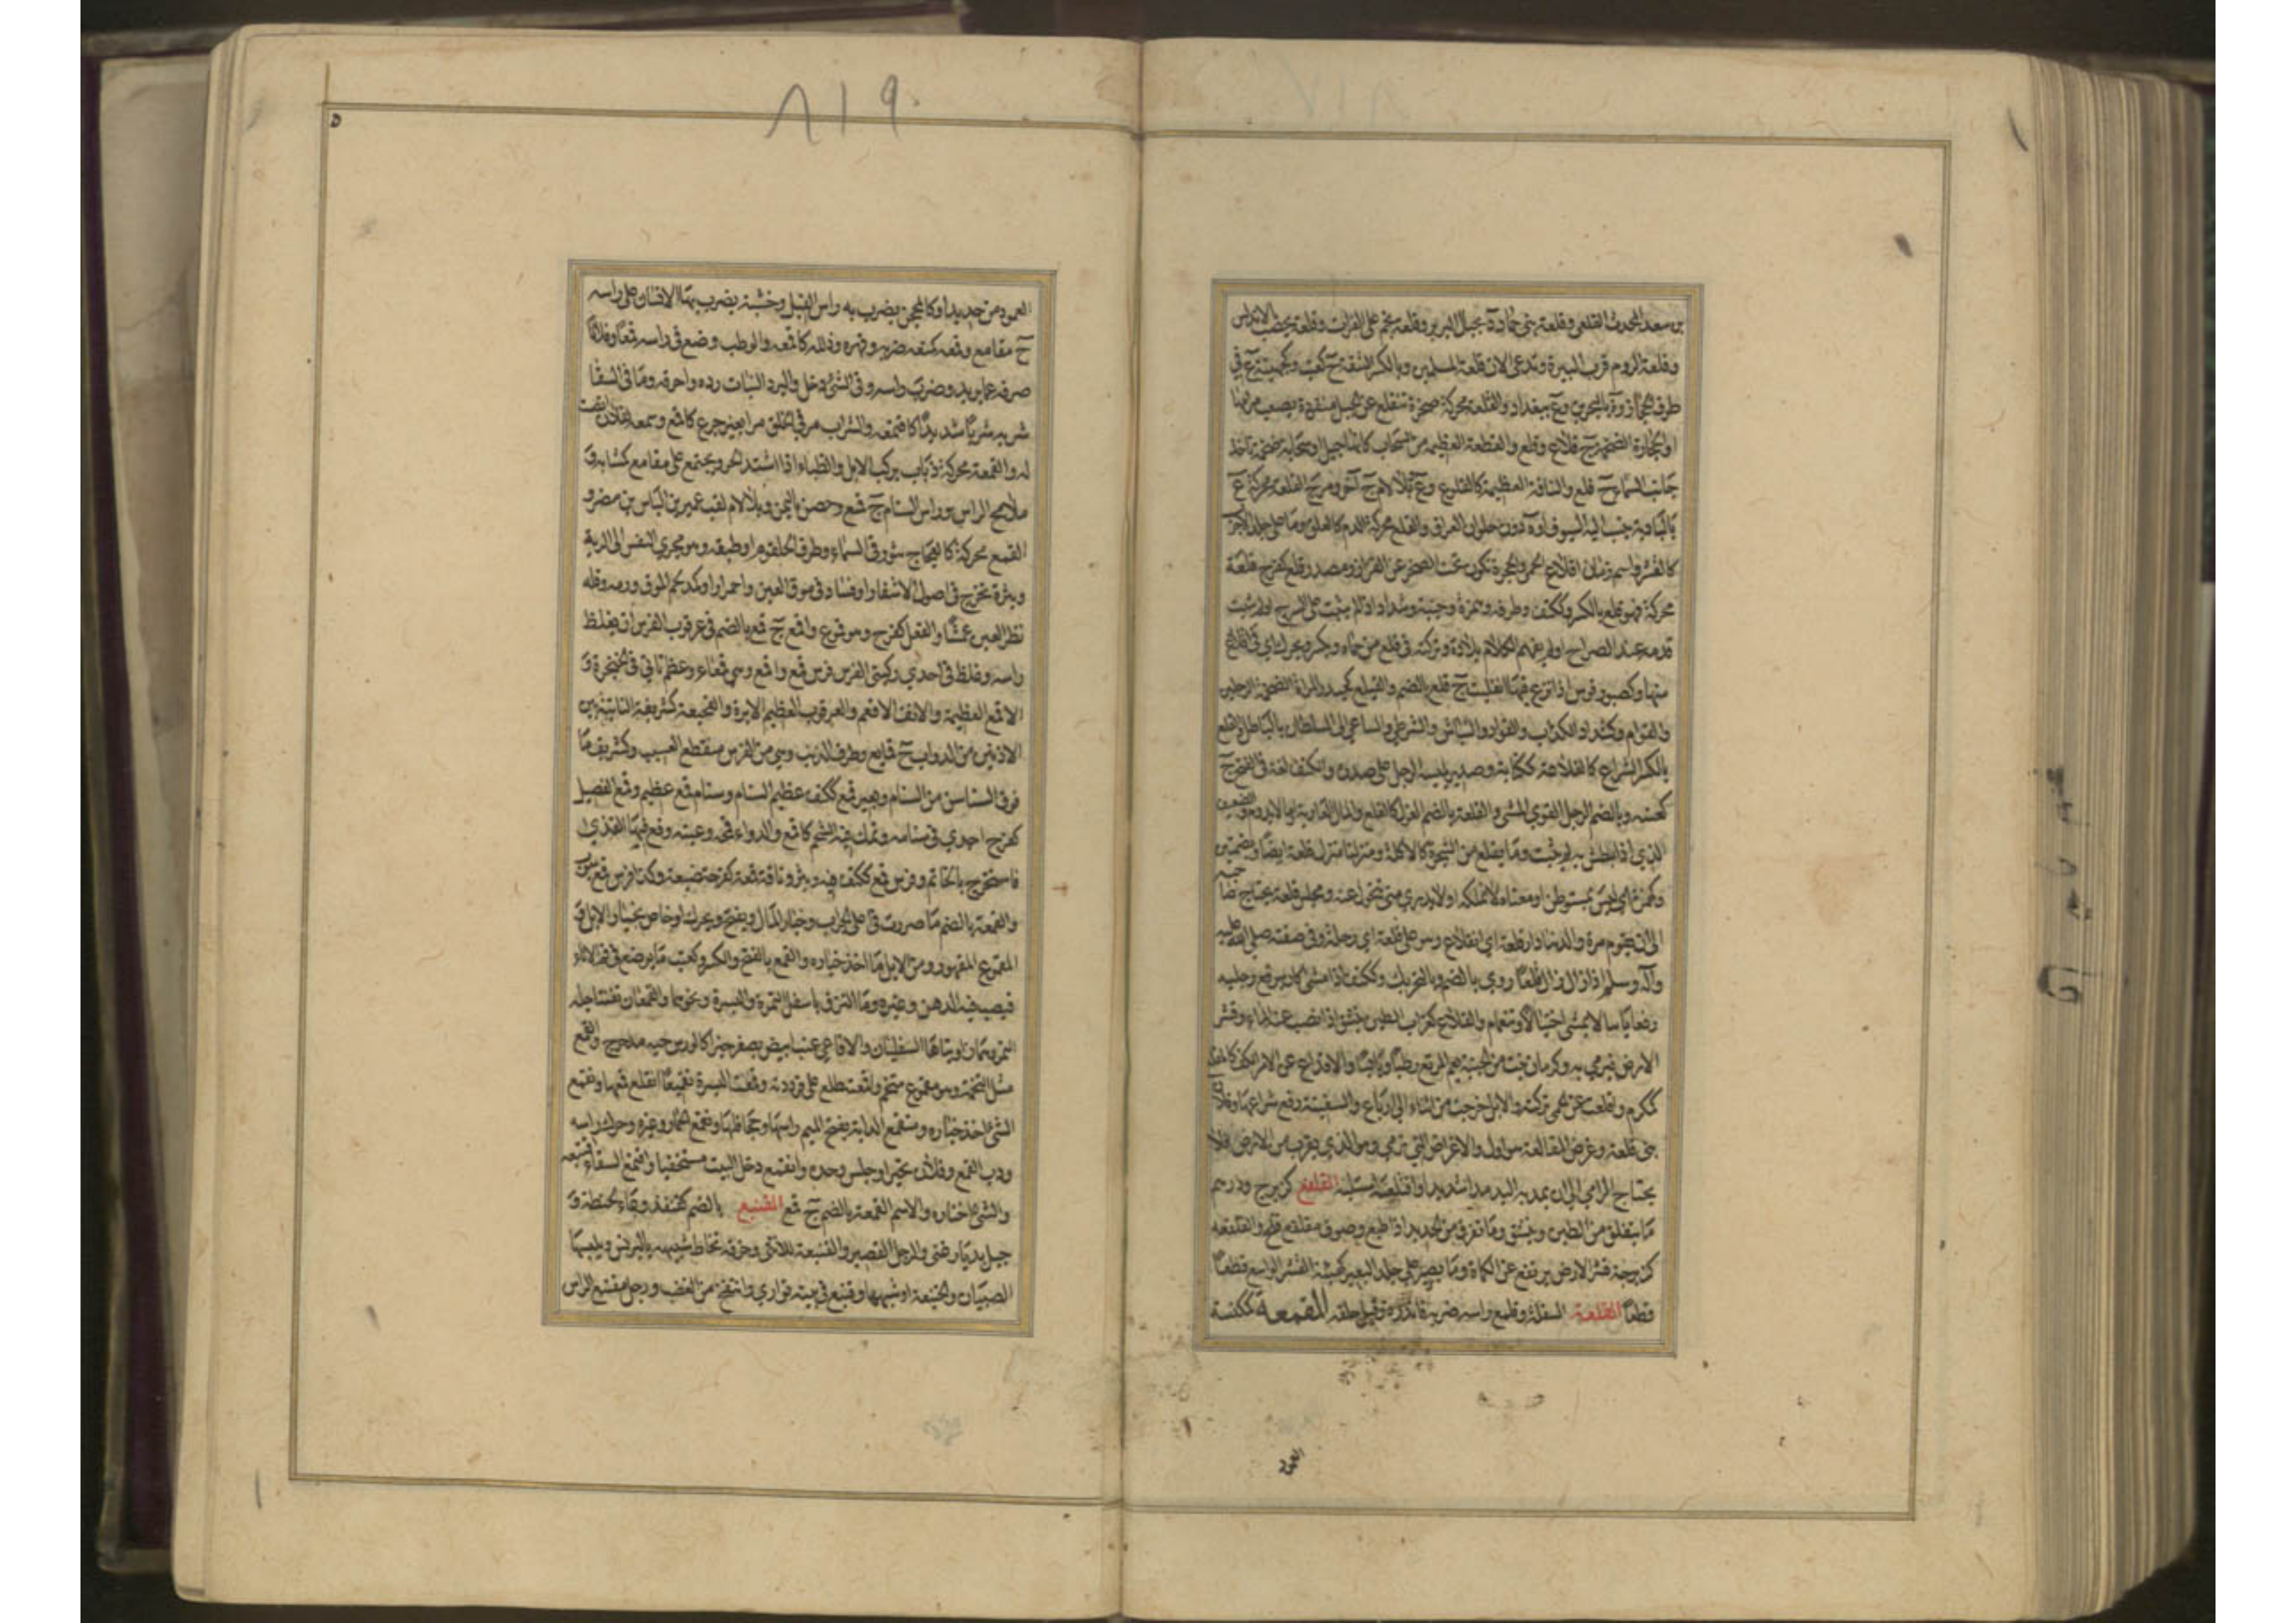 بن سعد المحدث القلعي وقلعة بني حماد د بجبل البربر وقلعة نجم على الفرات وقلعة يحصب الاندلس
وقلعة الروم قرب البيرة وتدعى الان قلعة المسلمين وبالكسر الشقة ج كعنب وكجهينة ع في
طرف الحجاز و ة بالبحرين وع ببغداد والقلعة محركة صخرة تنقلع عن الجبل منفردة يصعب مرامها
او الحجارة الضخمة ج قلاع وقلع والقطعة العظيمة من السحاب كانها جبل او سحابة ضخمة تاخذ
جانب السماء ج قلع والناقة العظيمة كالقلوع وع وبلا لام ع آخر ومرج القلعة محركة ع
بالبادية ينسب اليه السيوف او ة دون حلوان العراق والقلع محركة الدم كالعلق وما على جلد الاجرب
كالقشر واسم زمان اقلاع الحمى والحجرة تكون تحت الصخر عن الفزاز ومصدر قلع كفرح قلعة
محركة فهو قلع بالكسر وككتف وطرفة وهمزة وجبنة وشداد اذا لم يثبت على السرج او لم يثبت
قدمه عند الصراع او لم يفهم الكلام بلادة وتركته في قلع من حماه ويكسر ويحرك اي في اقلاع
منها وكصبور قوس اذا نزع فيها انقلبت ج قلع بالضم والقيلع كحيدر المراة الضخمة الرجلين
والقوام وكشداد الكذاب والقواد والنباش والشرطي والساعي الى السلطان بالباطل والقلع
بالكسر الشراع كالقلاعة ككتابة وصدير يلبسه الرجل على صدره والكنف لغة في الفتح ج
كعنبة وبالضم الرجل القوي المشي والقلعة بالضم العزل كالقلع والمال العارية او ما لا يدوم والضعيف
الذي اذا بطش به لم يثبت وما يقلع من الشجرة كالاكلة ومنزلنا منزل قلعة ايضا وبضمتين
وكهمزة اي ليس بمستوطن او معناه لا تملكه او لا يدري متى تتحول عنه ومجلس قلعة يحتاج صاحبه
الى ان يقوم مرة والدنيا دار قلعة اي انقلاع وهو على قلعة اي رحلة وفي صفته صلى الله عليه
وآله وسلم اذا زال زال قلعا روي بالضم وبالتحريك وككتف اذا مشى كان يرفع رجليه
رفعا باينا لا يمشي اختيالا وتنعما والقلاع كغراب الطين يتشقق اذا نضب عنه الماء وقشر
الارض فيرمى به وكرمان نبت من الجنبة نعم المرتع رطبا ويابسا والاقلاع عن الامر الكف كالمقلع
كمكرم واقلعت عنه الحمى تركته والابل خرجت من اثناء الى ارباع والسفينة رفع شراعها وفلان
بنى قلعة وغرض المقالعة هو اول الاغراض التي ترمى وهو الذي يقرب من الارض فلا
يحتاج الرامي الى ان يمد به اليد مدا شديدا واقتلعه استلبه القلفع كزبرج ودرهم
ما يتفلق من الطين ويتشقق وما تفرق من الحديد اذا طبع وصوف مقلفع قلح والقلفعة
كزبرجة قشر الارض يرتفع عن الكماة وما يصير على جلد البعير كهيئة القشر الواسع قطعا
قطعا القلمعة السفلة وقلمع راسه ضربه فاندره وقيل حلقه المقمعة كمكنسة
العمود
٨١٩
العمود من حديد او كالمحجن يضرب به راس الفيل وخشبة يضرب بها الانسان على راسه
ج مقامع وقمعه كمنعه ضربه وقهره وذلله كاقمعه والوطب وضع في راسه قمعا وفلانا
صرفه عما يريد وضرب راسه وفي الشيء دخل والبرد النبات رده واحرقه وما في السقا
شربه شربا شديدا كاقتمعه والشراب مر في الحلق مرا بغير جرع كاقمع وسمعه لفلان انصت
له والقمعة محركة ذباب يركب الابل والظباء اذا اشتد الحر ويجتمع على مقامع كمشابه و
ملامح الراس وراس السنام ج قمع وحصن باليمن وبلا لام لقب عمير بن الياس بن مضر و
القمع محركة كالعجاج يثور في السماء وطرف الحلقوم او طبقه وهو مجرى النفس الى الرية
وبثرة تخرج في اصول الاشفار او فساد في موق العين واحمرار او كمد لحم الموق وورمه وقلة
نظر العين عمشا والفعل كفرح وهو قموع واقمع ج قمع بالضم في عرقوب الفرس ان يغلظ
راسه وغلظ في احدى ركبتي الفرس فرس قمع واقمع وهي قمعاء وعظم ناتئ في الحنجرة و
الاقمع العظيمة والانف الاقعم والعرقوب العظيم الابرة والقميعة كشريفة الناتئة بين
الاذنين من الدواب ج قمايع وطرف الذنب وهي من الفرس منقطع العسيب وكشريف ما
فوق السناسن من السنام وبعير قمع ككتف عظيم السنام وسنام قمع عظيم وقمع الفصيل
كفرح اجدى في سنامه وتمك فيه الشحم كاقمع والدواء قمحه وعينه وقع فيها القذى
فاستخرج بالخاتم وفرس قمع ككتف فيه وبثر وناقة قمعة كفرحة ضبعة وكذا فرس قمع
والقمعة بالضم ما صررت في اعلى الجراب وخيار المال ويفتح ويحرك او خاص بخيار الابل و
المقموع المقهور ومن الابل ما اخذ خياره والقمع بالفتح والكسر وكعنب ما يوضع في فم الاناء
فيصب فيه الدهن وغيره وما التزق باسفل التمرة والبسرة ونحوهما والقمعان ثفنتا جلة
التمر وهما زاويتاها السفليان والاقماعي عنب ابيض يصفر اخيرا كالورس حبه مدحرج والقمع
مثل التخمة وهو مقموع متخم واقمعت طلع على قرودته وقمعت البسرة تقميعا انقلع قمعها وتقمع
الشيء اخذ خياره ومتقمع الدابة بفتح الميم راسها وجحافلها وتقمع الحمار وغيره وحرك راسه
وذب القمع وفلان تحير او جلس وحده وانقمع دخل البيت مستخفيا واقتمع السقاء
والشيء اختاره والاسم القمعة بالضم ج قمع القنبع بالضم كقنفذ وعاء الحنطة و
جبل بديار غني والرجل القصير والقنبعة للانثى وخرقة تخاط شبيهة بالبرنس ويلبسها
الصبيان والخنبعة او شبهها وقنبع في بيته توارى وانتفخ من الغضب ورجل مقنبع الراس